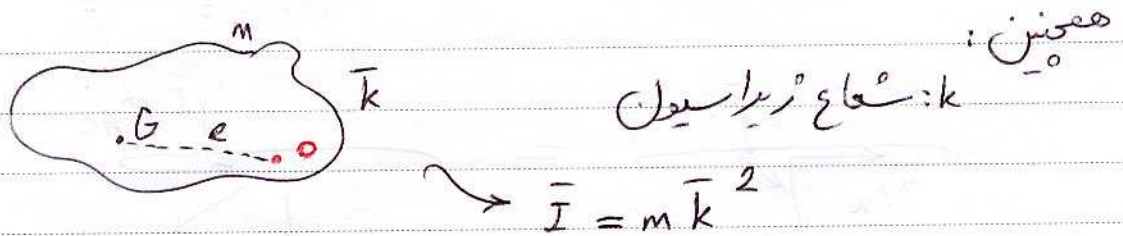 همچنین:
k: شعاع ژیراسیون
m
k̄
G e O
Ī = m k̄ ²